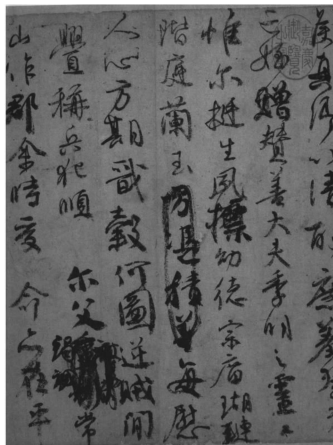 真卿以清酌庶羞祭
亡姪贈贊善大夫季明之靈曰
惟尔挺生夙標幼德宗廟瑚璉
階庭蘭玉方憑積善每慰
人心方期戩穀何圖逆賊間
釁稱兵犯順尔父竭誠常
山作郡余時受命亦在平